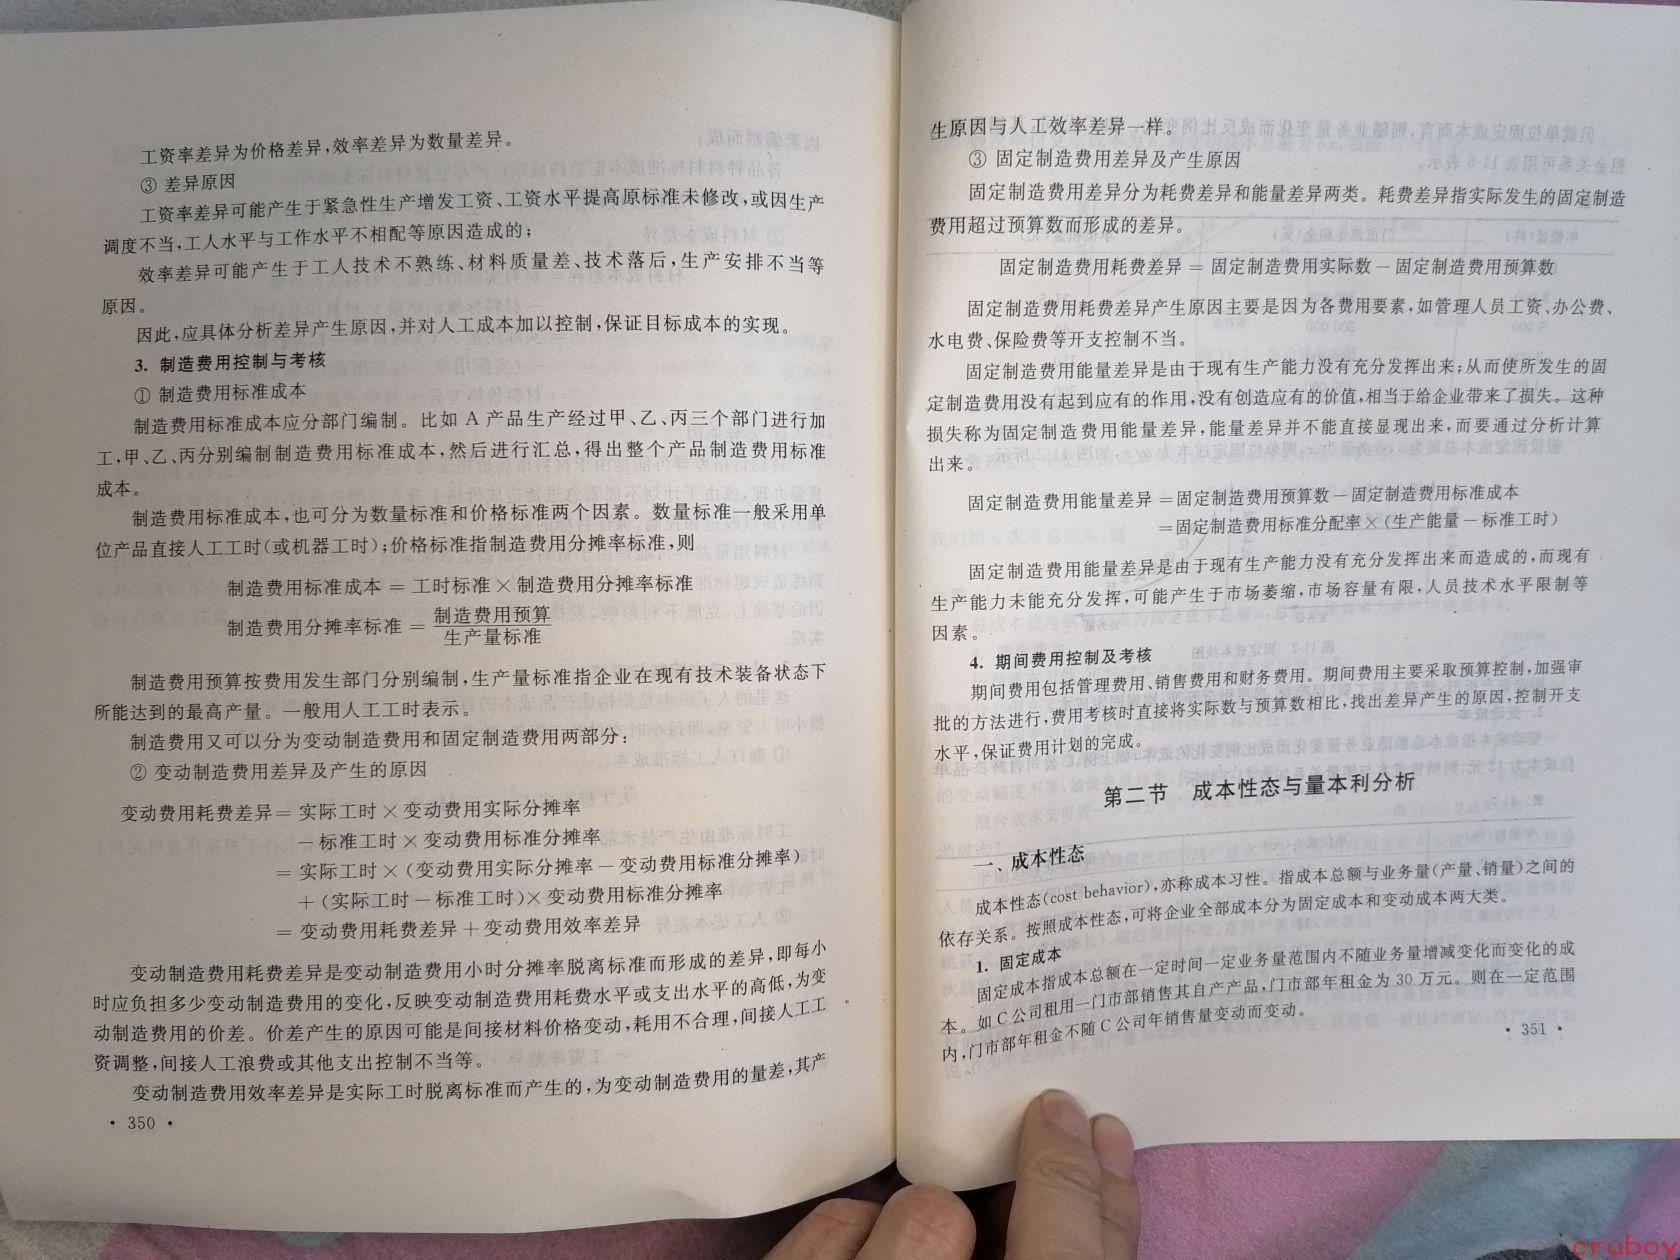 工资率差异为价格差异,效率差异为数量差异。
③ 差异原因
工资率差异可能产生于紧急性生产增发工资、工资水平提高原标准未修改,或因生产
调度不当,工人水平与工作水平不相配等原因造成的;
效率差异可能产生于工人技术不熟练、材料质量差、技术落后,生产安排不当等
原因。
因此,应具体分析差异产生原因,并对人工成本加以控制,保证目标成本的实现。
3. 制造费用控制与考核
① 制造费用标准成本
制造费用标准成本应分部门编制。比如 A 产品生产经过甲、乙、丙三个部门进行加
工,甲、乙、丙分别编制制造费用标准成本,然后进行汇总,得出整个产品制造费用标准
成本。
制造费用标准成本,也可分为数量标准和价格标准两个因素。数量标准一般采用单
位产品直接人工工时(或机器工时);价格标准指制造费用分摊率标准,则
制造费用标准成本 = 工时标准 × 制造费用分摊率标准
制造费用分摊率标准 = 制造费用预算
生产量标准
制造费用预算按费用发生部门分别编制,生产量标准指企业在现有技术装备状态下
所能达到的最高产量。一般用人工工时表示。
制造费用又可以分为变动制造费用和固定制造费用两部分:
② 变动制造费用差异及产生的原因
变动费用耗费差异= 实际工时 × 变动费用实际分摊率
—标准工时 × 变动费用标准分摊率
= 实际工时 × (变动费用实际分摊率 — 变动费用标准分摊率)
+ (实际工时 — 标准工时)× 变动费用标准分摊率
= 变动费用耗费差异 + 变动费用效率差异
变动制造费用耗费差异是变动制造费用小时分摊率脱离标准而形成的差异,即每小
时应负担多少变动制造费用的变化,反映变动制造费用耗费水平或支出水平的高低,为变
动制造费用的价差。价差产生的原因可能是间接材料价格变动,耗用不合理,间接人工工
资调整,间接人工浪费或其他支出控制不当等。
变动制造费用效率差异是实际工时脱离标准而产生的,为变动制造费用的量差,其产
· 350 ·
生原因与人工效率差异一样。
③ 固定制造费用差异及产生原因
固定制造费用差异分为耗费差异和能量差异两类。耗费差异指实际发生的固定制造
费用超过预算数而形成的差异。
固定制造费用耗费差异 = 固定制造费用实际数 — 固定制造费用预算数
固定制造费用耗费差异产生原因主要是因为各费用要素,如管理人员工资、办公费、
水电费、保险费等开支控制不当。
固定制造费用能量差异是由于现有生产能力没有充分发挥出来;从而使所发生的固
定制造费用没有起到应有的作用,没有创造应有的价值,相当于给企业带来了损失。这种
损失称为固定制造费用能量差异,能量差异并不能直接显现出来,而要通过分析计算
出来。
固定制造费用能量差异 =固定制造费用预算数 — 固定制造费用标准成本
=固定制造费用标准分配率 × (生产能量 — 标准工时)
固定制造费用能量差异是由于现有生产能力没有充分发挥出来而造成的,而现有
生产能力未能充分发挥,可能产生于市场萎缩,市场容量有限,人员技术水平限制等
因素。
4. 期间费用控制及考核
期间费用包括管理费用、销售费用和财务费用。期间费用主要采取预算控制,加强审
批的方法进行,费用考核时直接将实际数与预算数相比,找出差异产生的原因,控制开支
水平,保证费用计划的完成。
第二节 成本性态与量本利分析
一、成本性态
成本性态(cost behavior),亦称成本习性。指成本总额与业务量(产量、销量)之间的
依存关系。按照成本性态,可将企业全部成本分为固定成本和变动成本两大类。
1. 固定成本
固定成本指成本总额在一定时间一定业务量范围内不随业务量增减变化而变化的成
本。如 C 公司租用一门市部销售其自产产品,门市部年租金为 30 万元。则在一定范围
内,门市部年租金不随 C 公司年销售量变动而变动。
· 351 ·
cruboy